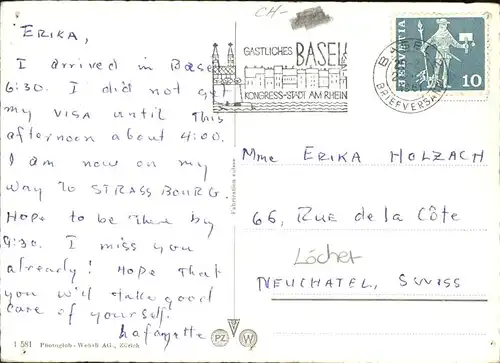 ERIKA,
I arrived in Base
6:30. I did not get
my VISA until This
afternoon about 4:00.
I am now on my
way to STRASSBOURG
Hope to be there by
9:30. I miss you
already! Hope that
you will take good
care of yourself.
Lafayette
1 581 Photoglob-Wehrli AG., Zürich
Fabrication suisse
PZ W
CH-
GASTLICHES BASEL
KONGRESS-STADT AM RHEIN
BASEL
BRIEFVERSAND
HELVETIA
10
Mme ERIKA HOLZACH
66, RUE de la Côte
Löcher
NEUCHATEL, SWISS